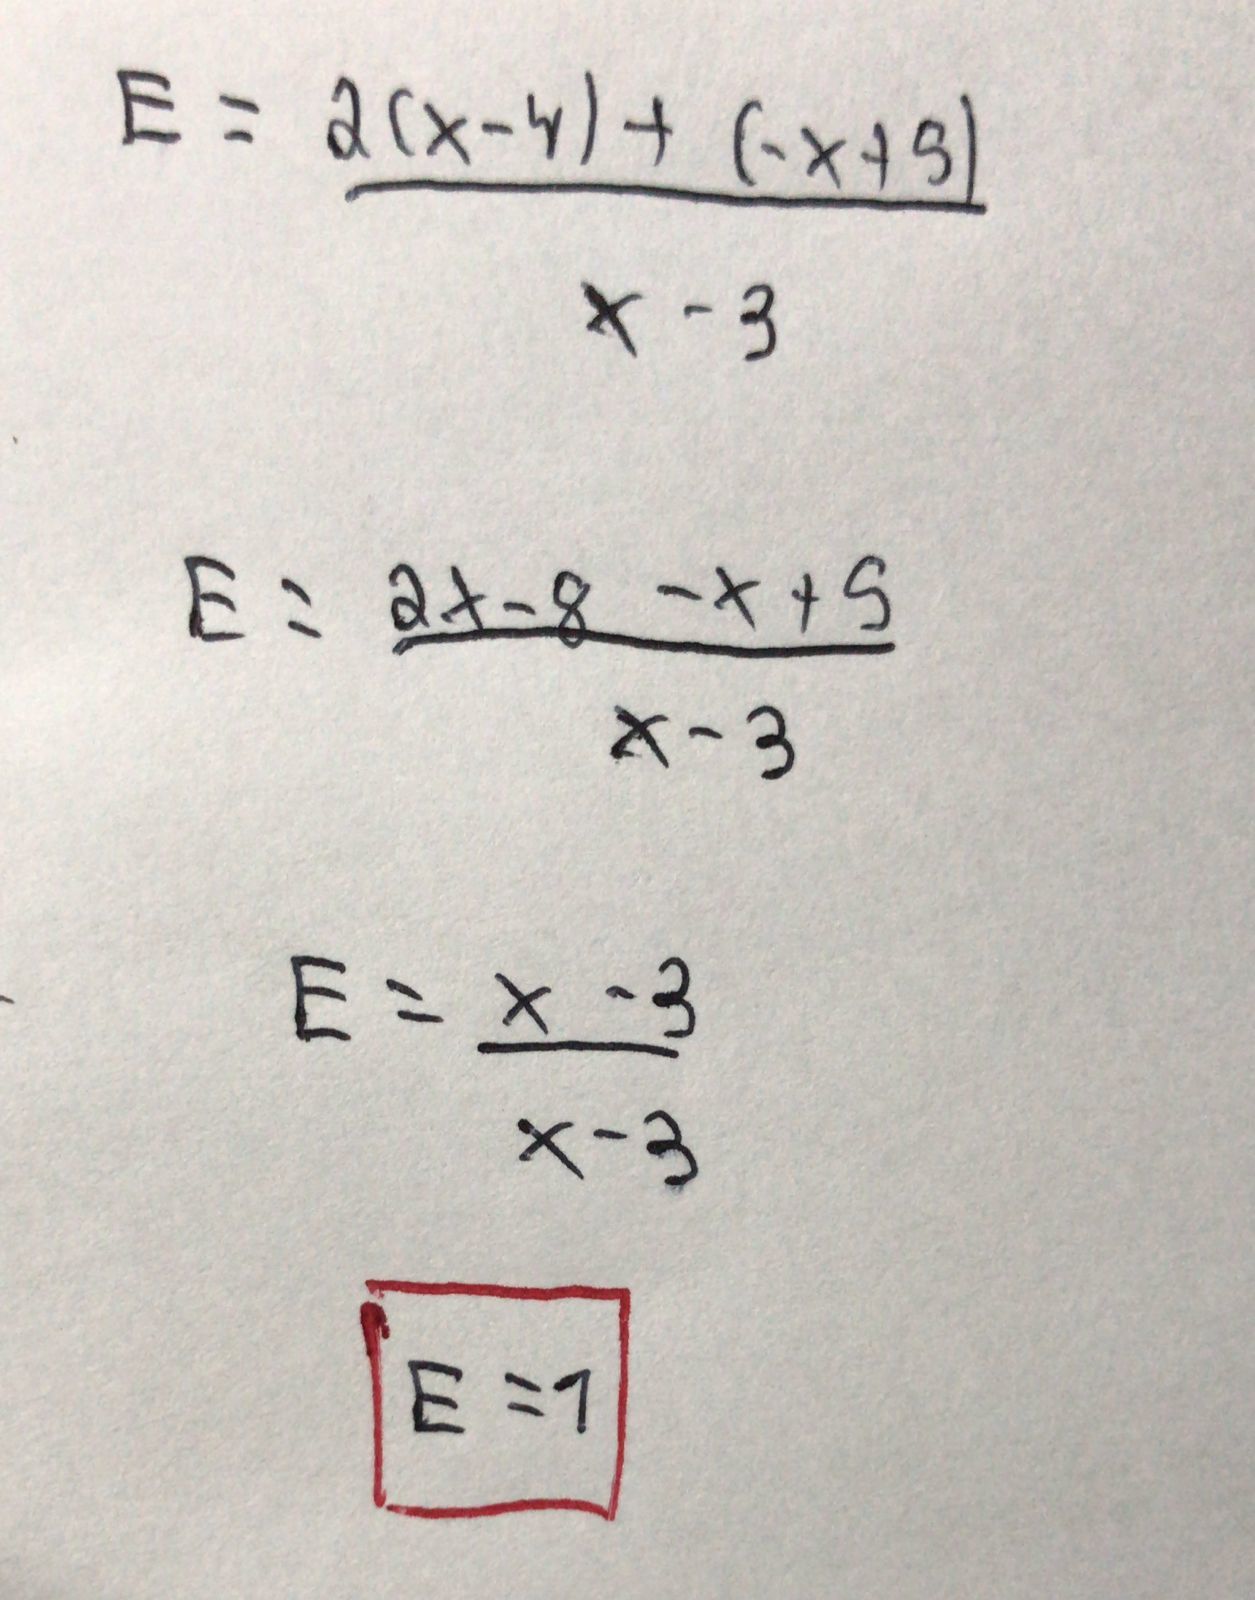 E = 2(x-4) + (-x+5)
x - 3
E = 2x-8 -x+5
x-3
E = x -3
x-3
E =1